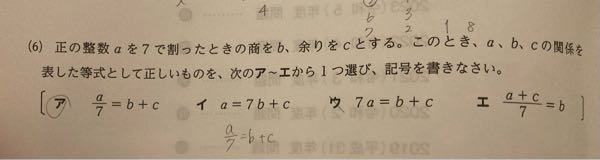 4
6 3
7 2 1 8
(6) 正の整数aを7で割ったときの商をb、余りをcとする。このとき、a、b、cの関係を
表した等式として正しいものを、次のア~エから1つ選び、記号を書きなさい。
ア a/7=b+c イ a=7b+c ウ 7a=b+c エ (a+c)/7=b
a/7=b+c